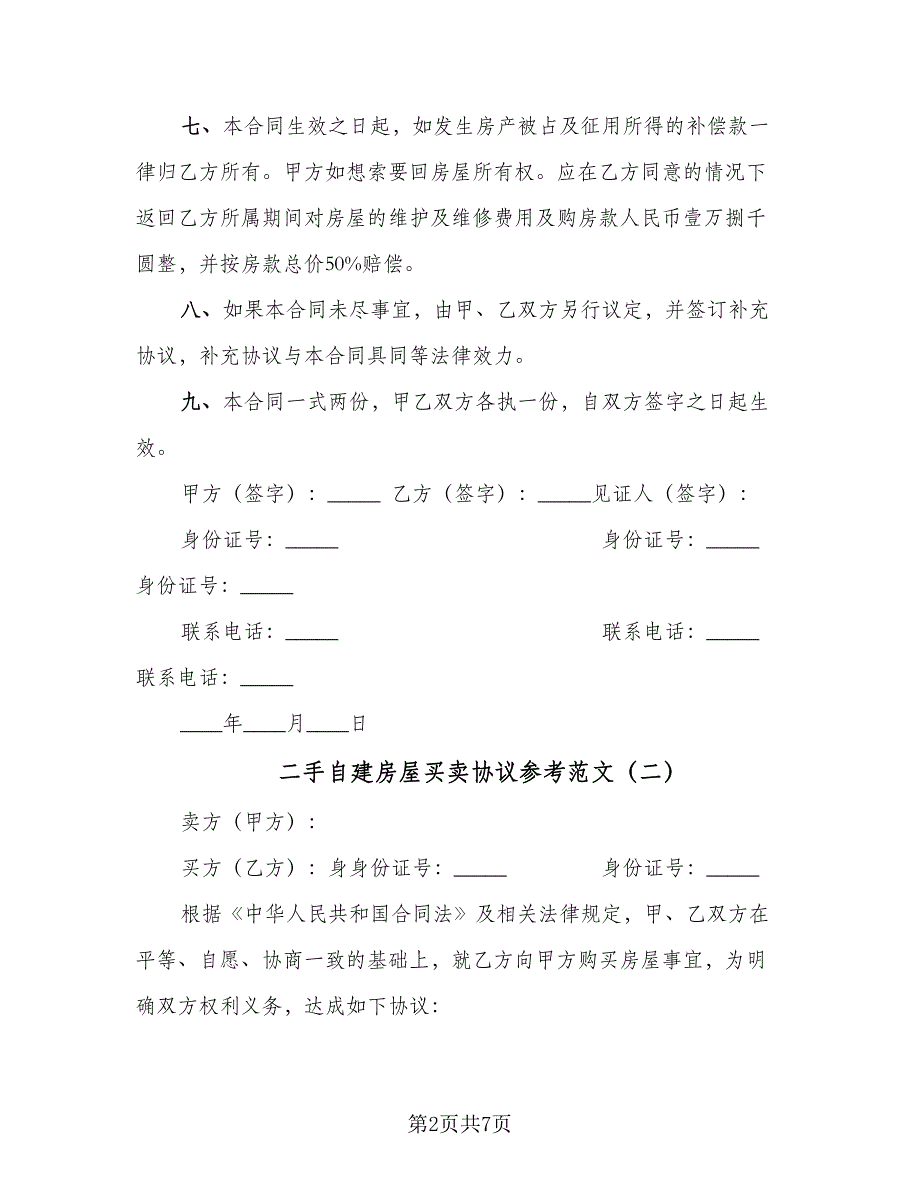 七、本合同生效之日起，如发生房产被占及征用所得的补偿款一
律归乙方所有。甲方如想索要回房屋所有权。应在乙方同意的情况下
返回乙方所属期间对房屋的维护及维修费用及购房款人民币壹万捌千
圆整，并按房款总价50%赔偿。
八、如果本合同未尽事宜，由甲、乙双方另行议定，并签订补充
协议，补充协议与本合同具同等法律效力。
九、本合同一式两份，甲乙双方各执一份，自双方签字之日起生
效。
甲方（签字）：_____ 乙方（签字）：_____见证人（签字）：
身份证号：_____ 身份证号：_____
身份证号：_____
联系电话：_____ 联系电话：_____
联系电话：_____
____年____月____日
二手自建房屋买卖协议参考范文（二）
卖方（甲方）：
买方（乙方）：身身份证号：_____ 身份证号：_____
根据《中华人民共和国合同法》及相关法律规定，甲、乙双方在
平等、自愿、协商一致的基础上，就乙方向甲方购买房屋事宜，为明
确双方权利义务，达成如下协议：
第2页共7页